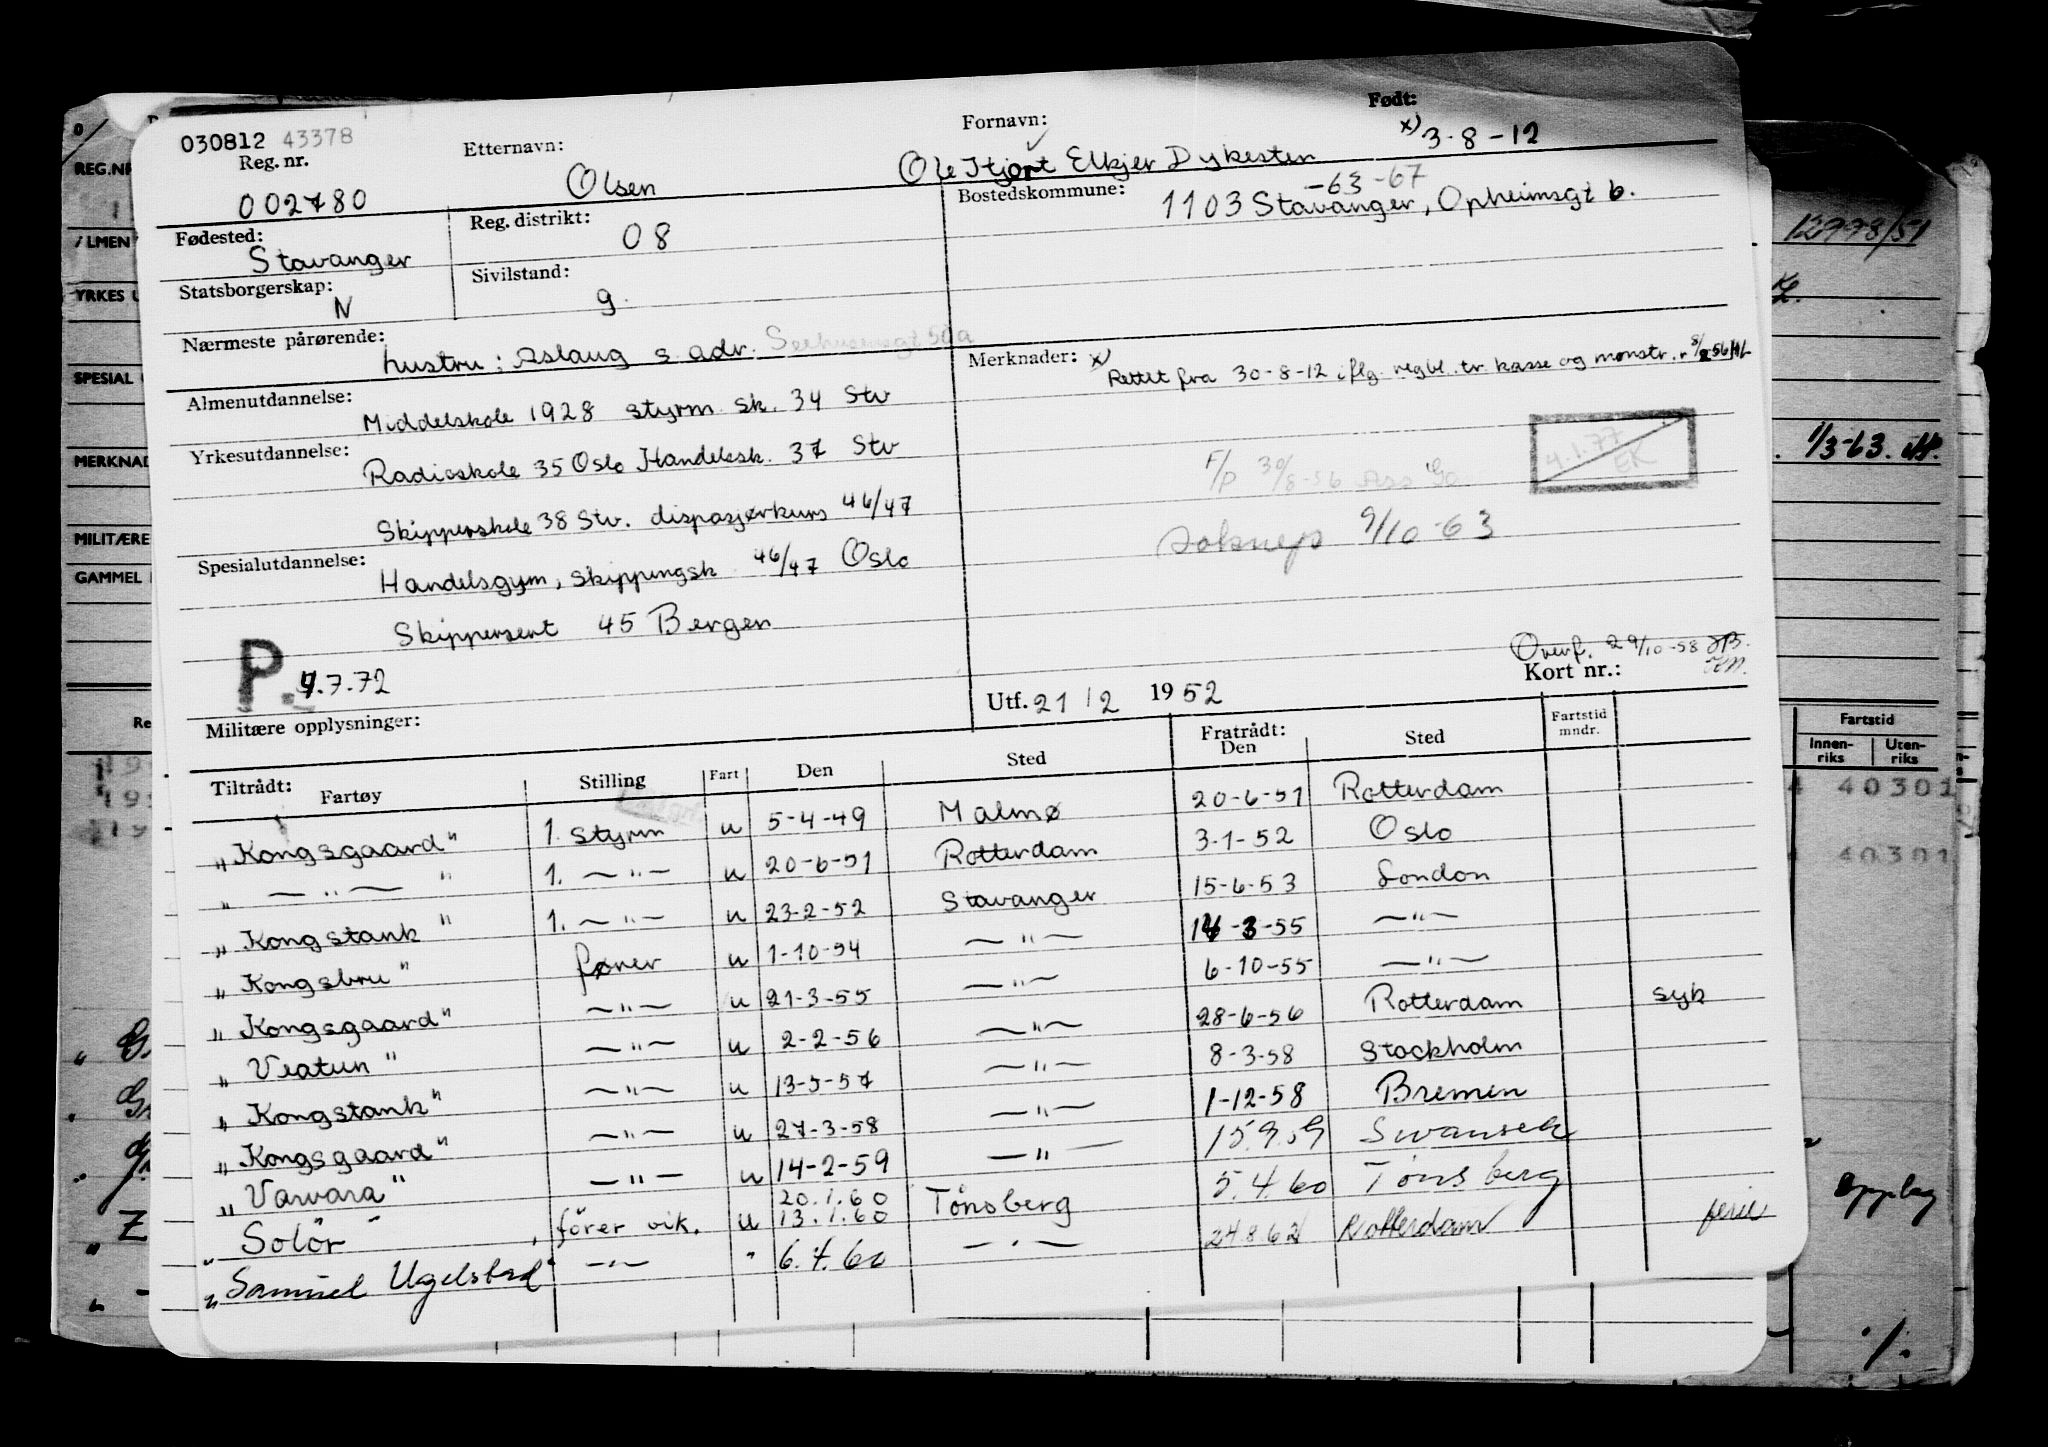 030812 43378
Reg. nr.
002780
Etternavn:
Olsen
Fornavn:
Ole Hjort Elkjer Dykesten
Født:
x) 3-8-12
Fødested:
Stavanger
Reg. distrikt:
08
Bostedskommune:
-63-67
1103 Stavanger, Opheimsgt 6.
Statsborgerskap:
N
Sivilstand:
g
Nærmeste pårørende:
hustru: Aslaug s. adr.
Merknader:
x) Rettet fra 30-8-12 iflg. regbl. tr. kasse og mønstr.
Almenutdannelse:
Middelskole 1928 styrm. sk. 34 Stv
Yrkesutdannelse:
Radioskole 35 Oslo Handelssk. 37 Stv
Skipperskole 38 Stv. dispasjørkurs 46/47
F/P 30/8-56
4.1.77
EK
9/10-63
Spesialutdannelse:
Handelsgym, skippingsk 46/47 Oslo
Skippersert 45 Bergen
P. 4.7.72
Overf. 29/10-58
Militære opplysninger:
Utf. 21/2 1952
Kort nr.:
Tiltrådt:
Fartøy Stilling Fart Den Sted Fratrådt: Den Sted Fartstid mndr.
"Kongsgaard" 1. styrm u 5-4-49 Malmø 20-6-51 Rotterdam
" — " — " 1. — " — u 20-6-51 Rotterdam 3-1-52 Oslo
"Kongstank" 1. — " — u 23-2-52 Stavanger 15-6-53 London
"Kongsbru" fører u 1-10-54 — " — 14-3-55 — " —
"Kongsgaard" — " — u 21-3-55 — " — 6-10-55 — " —
"Veatun" — " — u 2-2-56 — " — 28-6-56 Rotterdam syk
"Kongstank" — " — u 13-5-57 — " — 8-3-58 Stockholm
"Kongsgaard" — " — u 27-3-58 — " — 1-12-58 Bremen
"Varvara" — " — u 14-2-59 — " — 15.9.59 Swansea
20.1.60
"Solör" förer vik. u 13.1.60 Tönsberg 5.4.60 Tönsberg
"Samuel Ugelstad" — " — " 6.4.60 — " — 24.8.62 Rotterdam ferie
REG.NR
YRKES U
SPESIAL
MERKNAD
MILITÆRE
GAMMEL
12778/51
1/3-63.
Fartstid
Innenriks
Utenriks
40301
40301